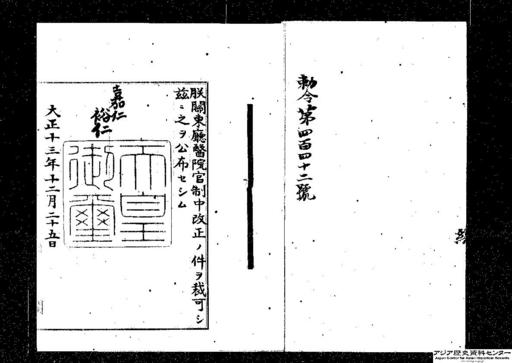 勅令第四百四十二號
朕關東廳醫院官制中改正ノ件ヲ裁可シ
玆ニ之ヲ公布セシム
嘉仁
裕仁
天皇御璽
大正十三年十二月二十五日
アジア歴史資料センター
Japan Center for Asian Historical Records